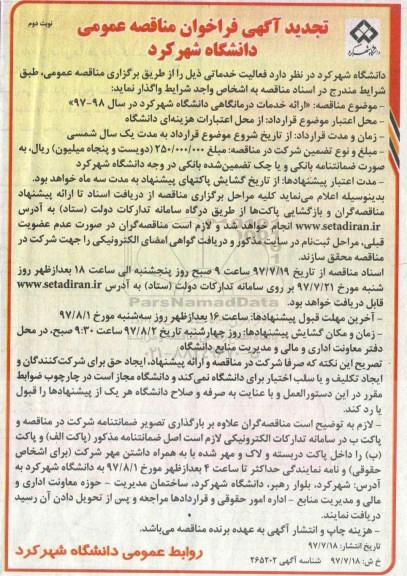 تجدید آگهی فراخوان مناقصه عمومی
نوبت دوم
دانشگاه شهرکرد
دانشگاه شهرکرد در نظر دارد فعالیت خدماتی ذیل را از طریق برگزاری مناقصه عمومی، طبق
شرایط مندرج در اسناد مناقصه به اشخاص واجد شرایط واگذار نماید:
- موضوع مناقصه: «ارائه خدمات درمانگاهی دانشگاه شهرکرد در سال ۹۸-۹۷»
- محل اعتبار موضوع قرارداد: از محل اعتبارات هزینه‌ای دانشگاه
- زمان و مدت قرارداد: از تاریخ شروع موضوع قرارداد به مدت یک سال شمسی
- مبلغ و نوع تضمین شرکت در مناقصه: مبلغ ۲۵۰/۰۰۰/۰۰۰ (دویست و پنجاه میلیون) ریال، به
صورت ضمانتنامه بانکی و یا چک تضمین‌شده بانکی در وجه دانشگاه شهرکرد
- مدت اعتبار پیشنهادها: از تاریخ گشایش پاکتهای پیشنهاد به مدت سه ماه خواهد بود.
بدینوسیله اعلام می‌نماید کلیه مراحل برگزاری مناقصه از دریافت اسناد تا ارائه پیشنهاد
مناقصه‌گران و بازگشایی پاکت‌ها از طریق درگاه سامانه تدارکات دولت (ستاد) به آدرس
www.setadiran.ir انجام خواهد شد و لازم است مناقصه‌گران در صورت عدم عضویت
قبلی، مراحل ثبت‌نام در سایت مذکور و دریافت گواهی امضای الکترونیکی را جهت شرکت در
مناقصه محقق سازند.
اسناد مناقصه از تاریخ ۹۷/۷/۱۹ ساعت ۹ صبح روز پنجشنبه الی ساعت ۱۸ بعدازظهر روز
شنبه مورخ ۹۷/۷/۲۱ بر روی سامانه تدارکات دولت (ستاد) به آدرس www.setadiran.ir
قابل دریافت خواهد بود.
ParsNamadData
- آخرین مهلت قبول پیشنهادها: ساعت ۱۶ بعدازظهر روز سه‌شنبه مورخ ۹۷/۸/۱
- زمان و مکان گشایش پیشنهادها: روز چهارشنبه تاریخ ۹۷/۸/۲ ساعت ۹:۳۰ صبح، در محل
دفتر معاونت اداری و مالی و مدیریت منابع دانشگاه
تصریح این نکته که صرفا شرکت در مناقصه و ارائه پیشنهاد، ایجاد حق برای شرکت‌کنندگان و
ایجاد تکلیف و یا سلب اختیار برای دانشگاه نمی‌کند و دانشگاه مجاز است در چارچوب ضوابط
مقرر در این دستورالعمل و با عنایت به صرفه و صلاح دانشگاه هر یک از پیشنهادها را قبول
یا رد کند.
- لازم به توضیح است مناقصه‌گران علاوه بر بارگذاری تصویر ضمانتنامه شرکت در مناقصه و
پاکت ب در سامانه تدارکات الکترونیکی لازم است اصل ضمانتنامه مذکور (پاکت الف) و پاکت
(ب) را داخل پاکت دربسته و لاک و مهر شده با به همراه داشتن مهر شرکت (برای اشخاص
حقوقی) و نامه نمایندگی حداکثر تا ساعت ۴ بعدازظهر مورخ ۹۷/۸/۱ به دانشگاه شهرکرد به
آدرس: شهرکرد، بلوار رهبر، دانشگاه شهرکرد، ساختمان مدیریت - حوزه معاونت اداری و
مالی و مدیریت منابع - اداره امور حقوقی و قراردادها مراجعه و پس از تحویل دادن آن رسید
دریافت نمایند.
- هزینه چاپ و انتشار آگهی به عهده برنده مناقصه می‌باشد.
تاریخ انتشار: ۹۷/۷/۱۸
خ ش: ۹۷/۷/۱۸ شناسه آگهی ۲۶۵۲۰۲
روابط عمومی دانشگاه شهرکرد